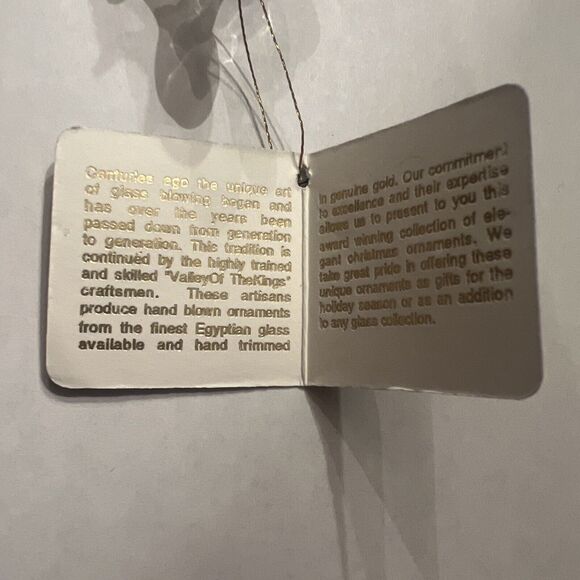 Centuries ago the unique art
of glass blowing began and
has over the years been
passed down from generation
to generation. This tradition is
continued by the highly trained
and skilled "ValleyOf TheKings"
craftsmen. These artisans
produce hand blown ornaments
from the finest Egyptian glass
available and hand trimmed
in genuine gold. Our commitment
to excellence and their expertise
allows us to present to you this
award winning collection of ele-
gant christmas ornaments. We
take great pride in offering these
unique ornaments as gifts for the
holiday season or as an addition
to any glass collection.